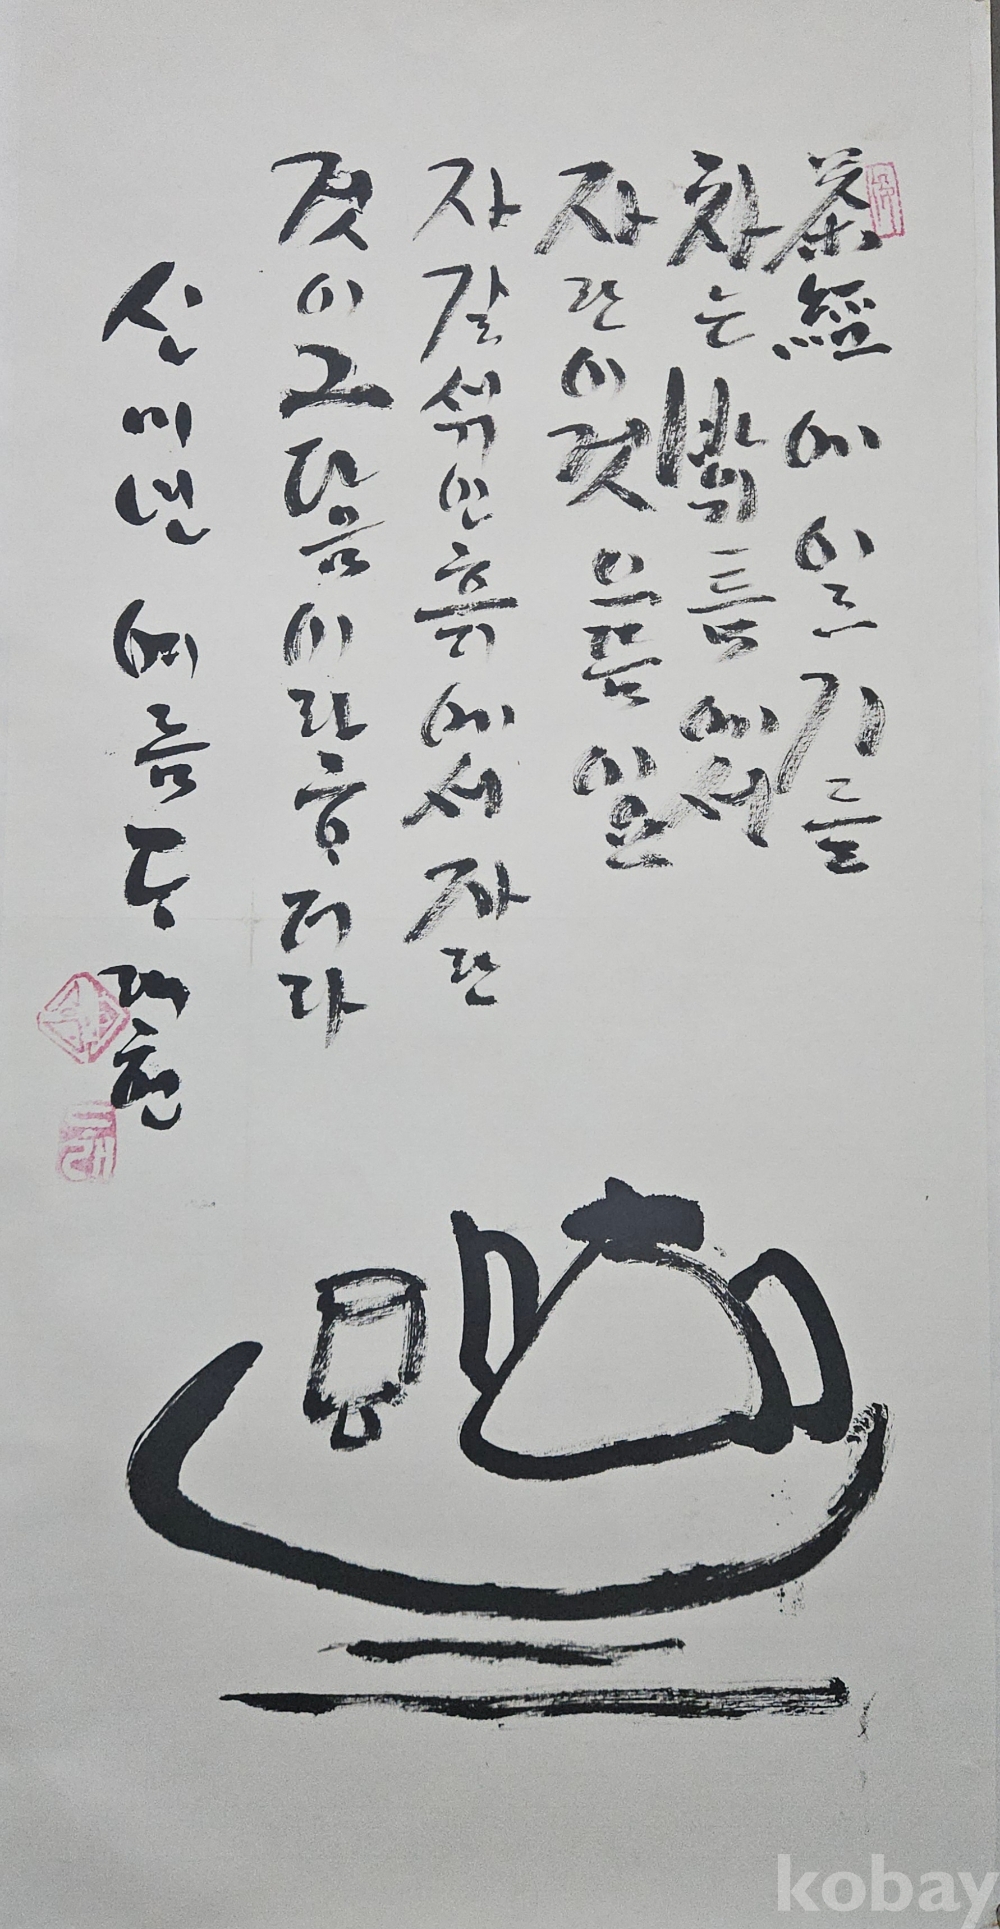 茶經에 이르기를
차는 틈에서
자란 이것 으뜸이요
자갈 섞인 흙에서 자란
것이 그 다음이라 ᄒᆞ더라
신미년 여름
kobay